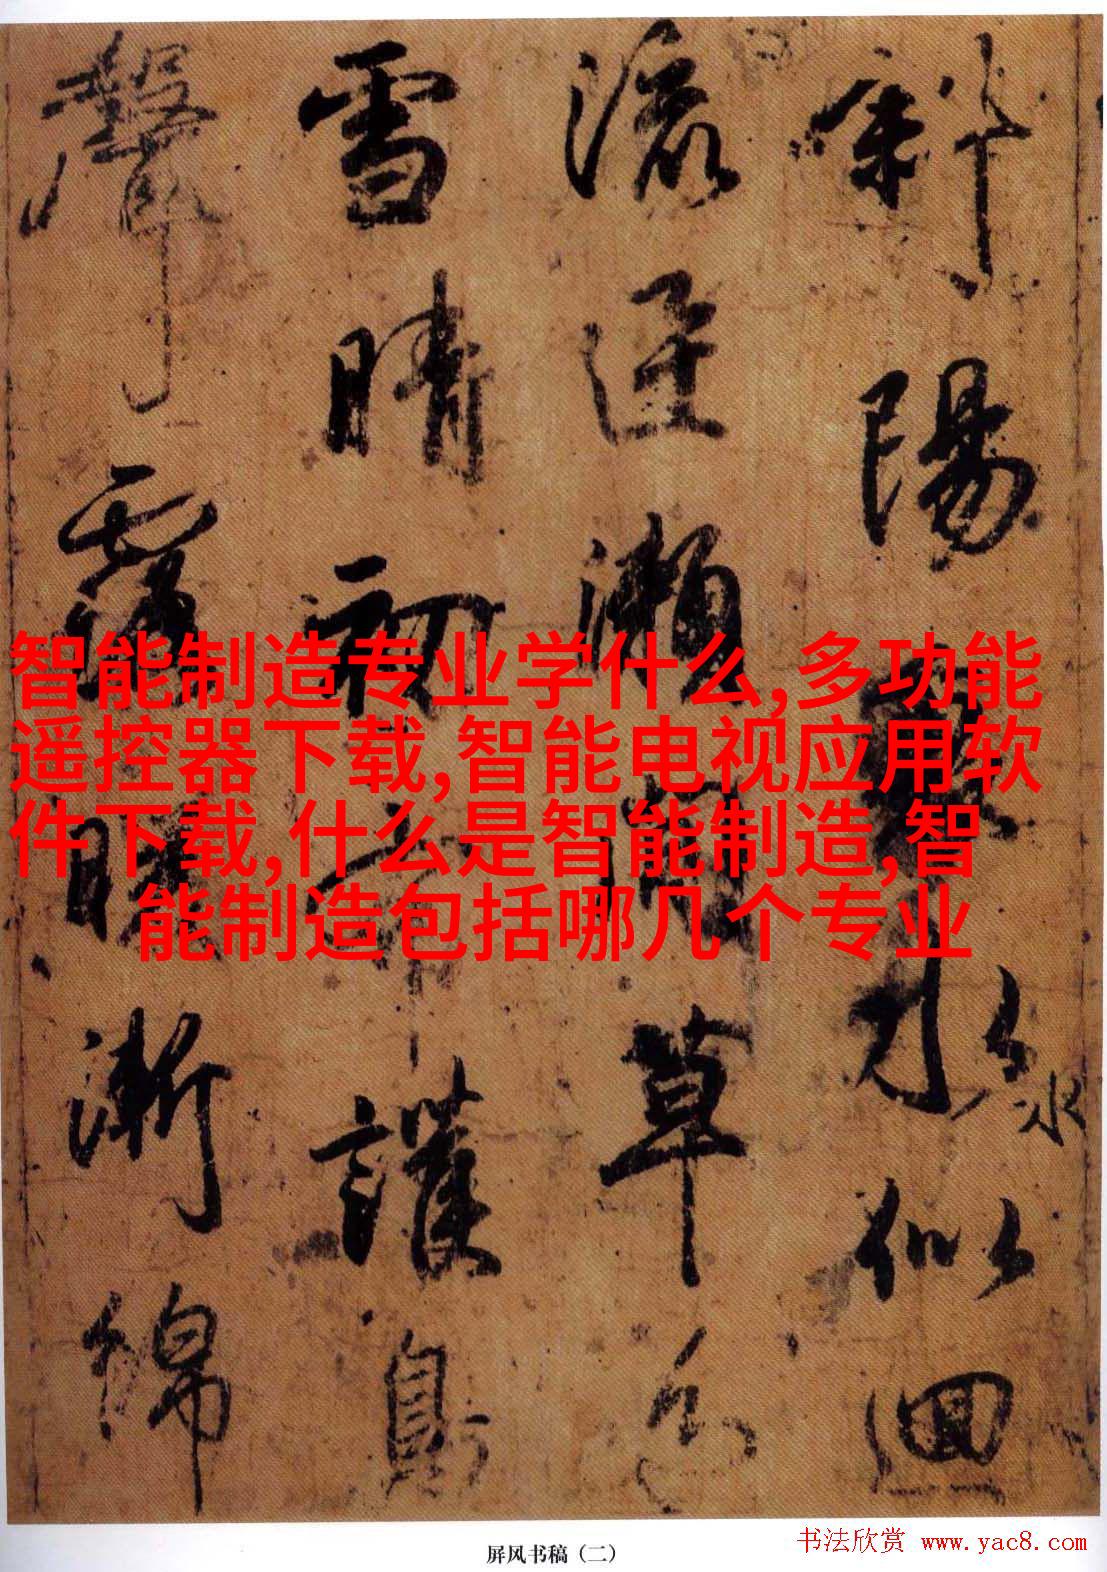 斜陽水似洄
草色
雪晴初護鳥
聲漸綿
智能制造专业学什么,多功能
遥控器下载,智能电视应用软
件下载,什么是智能制造,智
能制造包括哪几个专业
屏风书稿（二）
书法欣赏 www.yac8.com